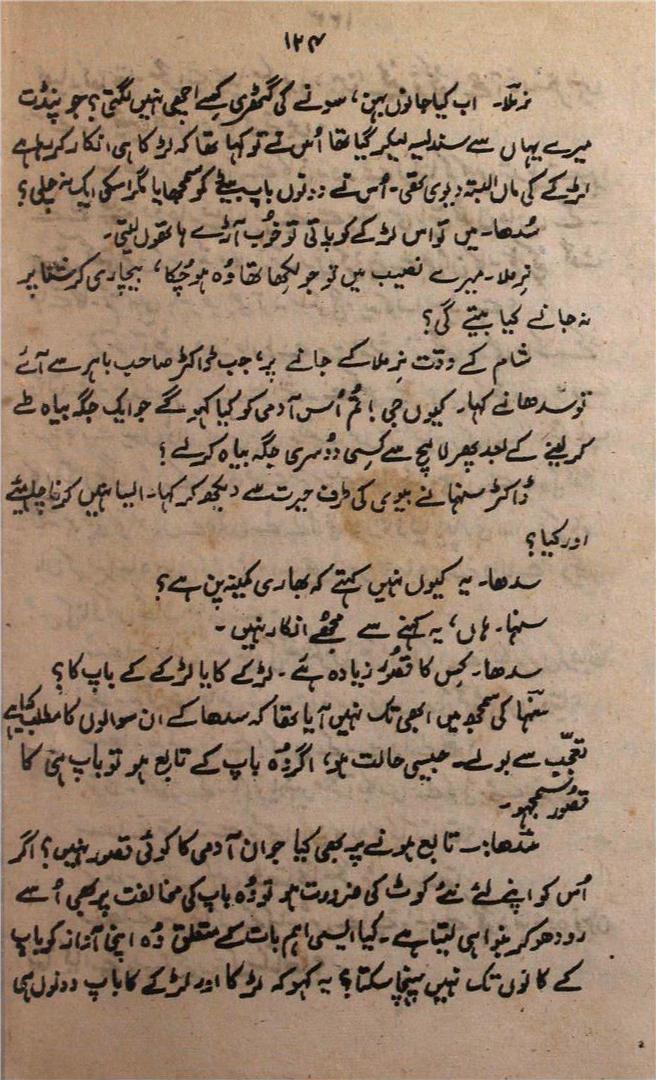 ۱۲۴
نرملا۔ اب کیا جانوں بہن، سونے کی گٹھڑی کسے اچھی نہیں لگتی؟ جو پنڈت
میرے یہاں سے سندلیہ لیکر گیا تھا اُس نے تو کہا تھا کہ لڑکا ہی انکار کر رہا ہے
لڑکے کی ماں البتہ دیوی تھی۔ اُس نے دونوں باپ بیٹے کو سمجھایا مگر اسکی ایک نہ چلی؟
سُدھا۔ میں تو اس لڑکے کو پاتی تو خوب آڑے ہاتھوں لیتی۔
نرملا۔ میرے نصیب میں تو جو لکھا تھا وُہ ہو چُکا، بیچاری کرشنا پر
نہ جانے کیا بیتے گی؟
شام کے وقت نرملا کے جانے پر، جب ڈاکٹر صاحب باہر سے آئے
تو سدھا نے کہا۔ کیوں جی! تُم اُس آدمی کو کیا کہو گے جو ایک جگہ بیاہ طے
کر لینے کے بعد پھر لالچ سے کِسی دُوسری جگہ بیاہ کر لے؟
ڈاکٹر سنہا نے بیوی کی طرف حیرت سے دیکھ کر کہا۔ ایسا نہیں کرنا چاہیئے
اور کیا؟
سدھا۔ یہ کیوں نہیں کہتے کہ بھاری کمینہ پن ہے؟
سنہا۔ ہاں، یہ کہنے سے مجھے انکار نہیں۔
سدھا۔ کِس کا قصُور زیادہ ہے۔ لڑکے کا یا لڑکے کے باپ کا؟
سنہا کی سمجھ میں ابھی تک نہیں آیا تھا کہ سدھا کے ان سوالوں کا مطلب کیا ہے
تعجّب سے بولے۔ جیسی حالت ہو، اگر وُہ باپ کے تابع ہو تو باپ ہی کا
قصُور سمجھو۔
سُدھا:۔ تابع ہونے پر بھی کیا جوان آدمی کا کوئی قصور نہیں؟ اگر
اُس کو اپنے لئے نئے کوٹ کی ضرورت ہو تو وُہ باپ کی مخالفت پر بھی اُسے
رو دھو کر بنوا ہی لیتا ہے۔ کیا ایسی اہم بات کے متعلق وُہ اپنی آواز کو باپ
کے کانوں تک نہیں پہنچا سکتا؟ یہ کہو کہ لڑکا اور لڑکے کا باپ دونوں ہی